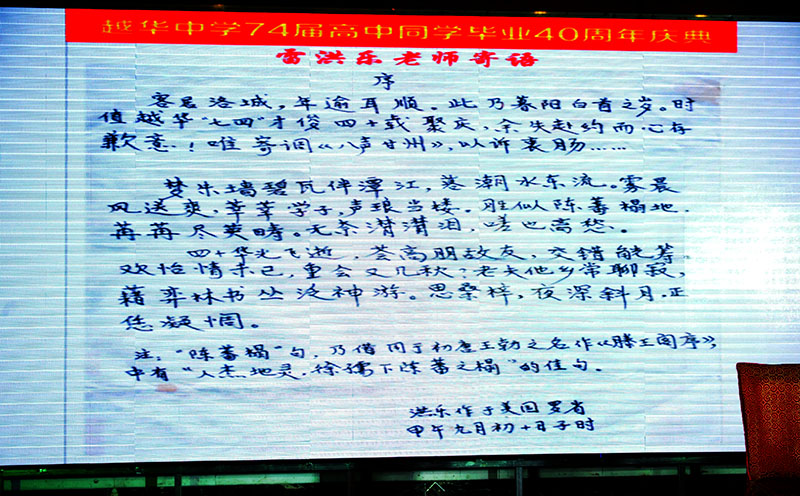 越华中学74届高中同学毕业40周年庆典
雷洪乐老师寄语
序
客居洛城，年逾耳顺。此乃暮阳白首之岁。时
值越华“七四”才俊四十载聚庆，余失赴约而心存
歉意！唯寄词《八声甘州》，以诉衷肠……
梦朱墙碧瓦伴潭江，荡潮水东流。雾晨
风送爽，莘莘学子，声琅当楼。胜似陈蕃榻地，
苒苒尽英畴。无奈潸潸泪，嗟也高愁。
四十华光飞逝，荟高朋故友，交错觥筹。
欢怡情未已，重会又几秋？老夫他乡常聊寂，
藉弈林书丛泛神游。思桑梓，夜深斜月，正
恁凝惆。
注：“陈蕃榻”句，乃借用于初唐王勃之名作《滕王阁序》，
中有“人杰地灵，徐孺下陈蕃之榻”的佳句。
洪乐作于美国罗省
甲午九月初十日子时